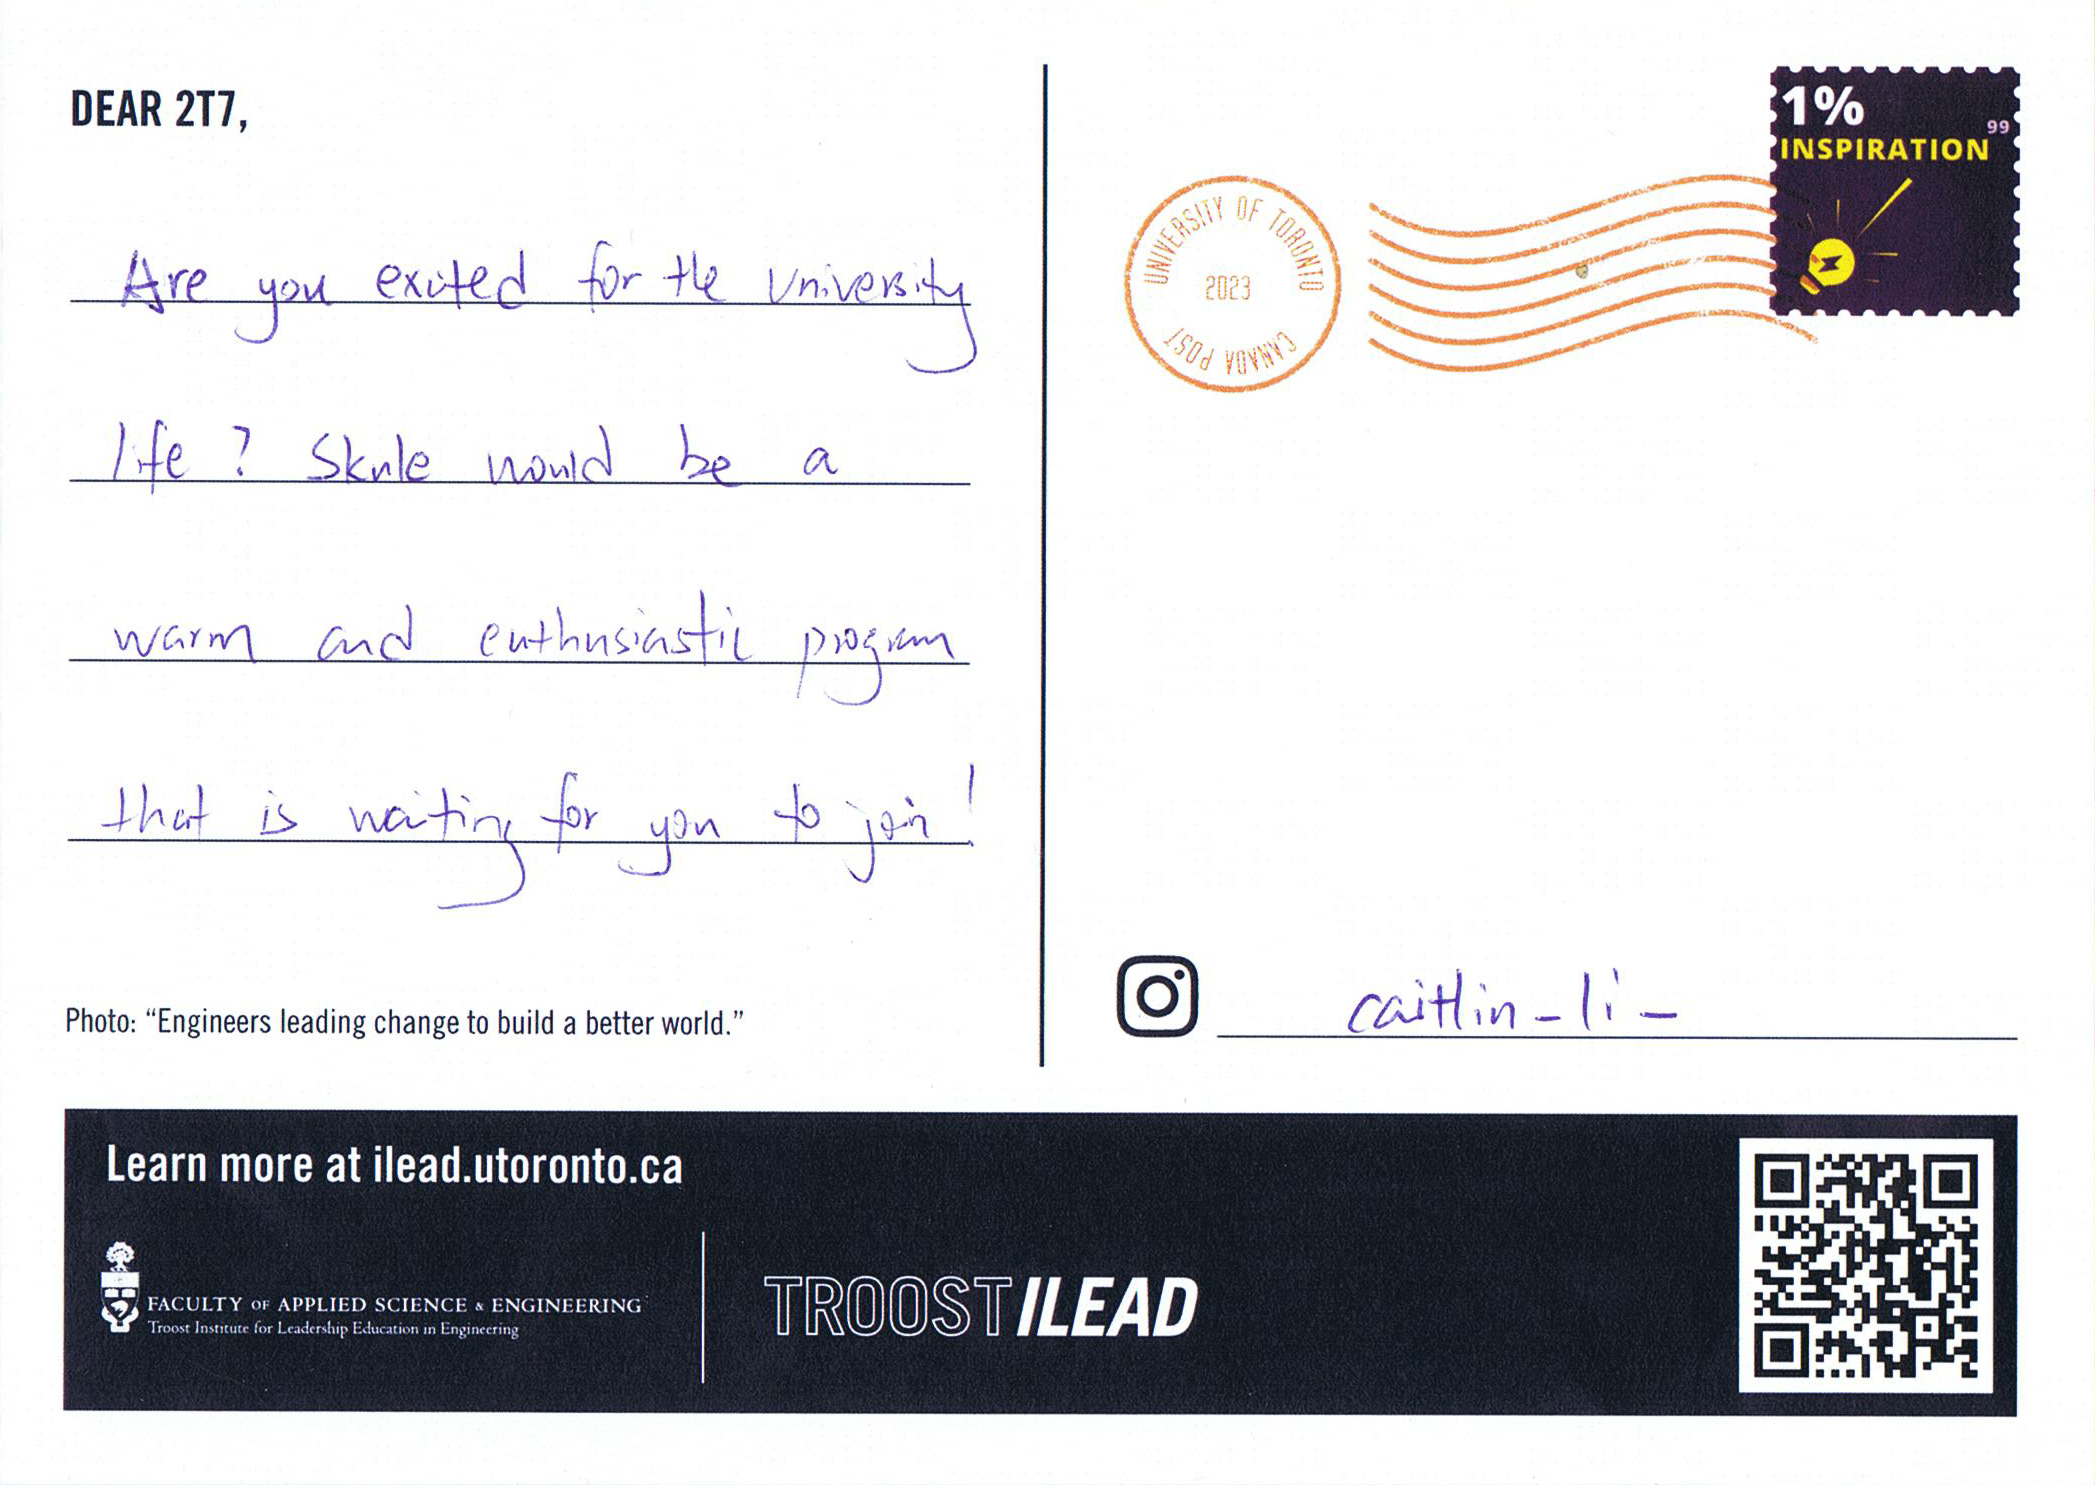 DEAR 2T7,
Are you exited for the University
life? Skule would be a
warm and enthusiastic program
that is waiting for you to join!
Photo: “Engineers leading change to build a better world.”
1%
99
INSPIRATION
UNIVERSITY OF TORONTO
2023
CANADA POST
caitlin_li_
Learn more at ilead.utoronto.ca
FACULTY OF APPLIED SCIENCE & ENGINEERING
Troost Institute for Leadership Education in Engineering
TROOST ILEAD